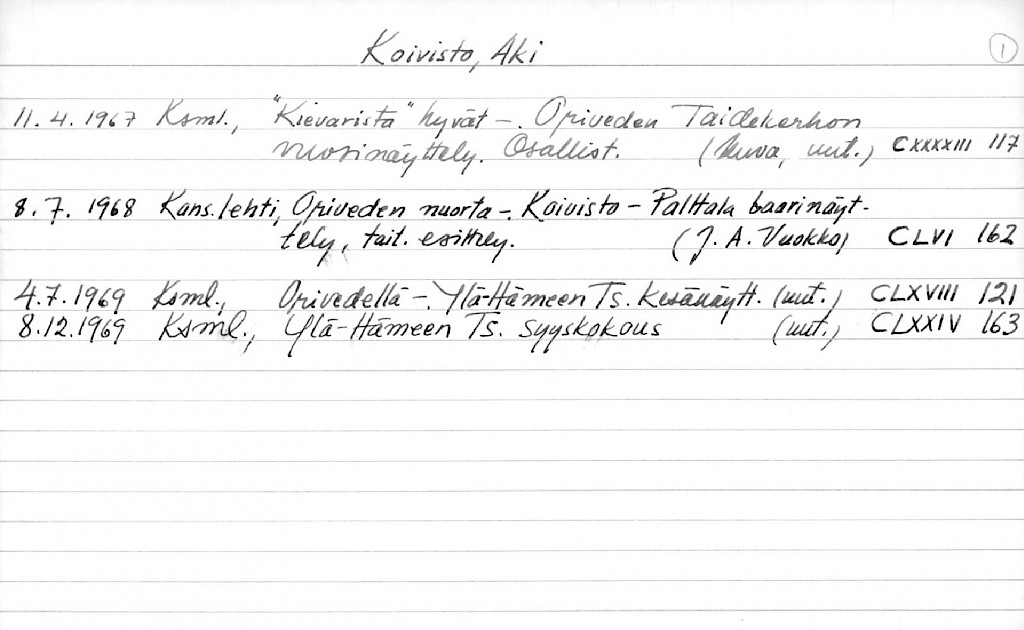 Koivisto, Aki
1
11.4.1967 Ksml., "Kievarista" hyvät -. Oriveden Taidekerhon
vuosinäyttely. Osallist. (kuva, uut.) CXXXXIII 117
8.7.1968 Kans.lehti, Oriveden nuorta -. Koivisto - Palttala baarinäyt-
tely, tait. esittely. (J. A. Vuokko) CLVI 162
4.7.1969 Ksml., Orivedellä -. Ylä-Hämeen Ts. kesänäytt. (uut.) CLXVIII 121
8.12.1969 Ksml., Ylä-Hämeen Ts. syyskokous (uut.) CLXXIV 163